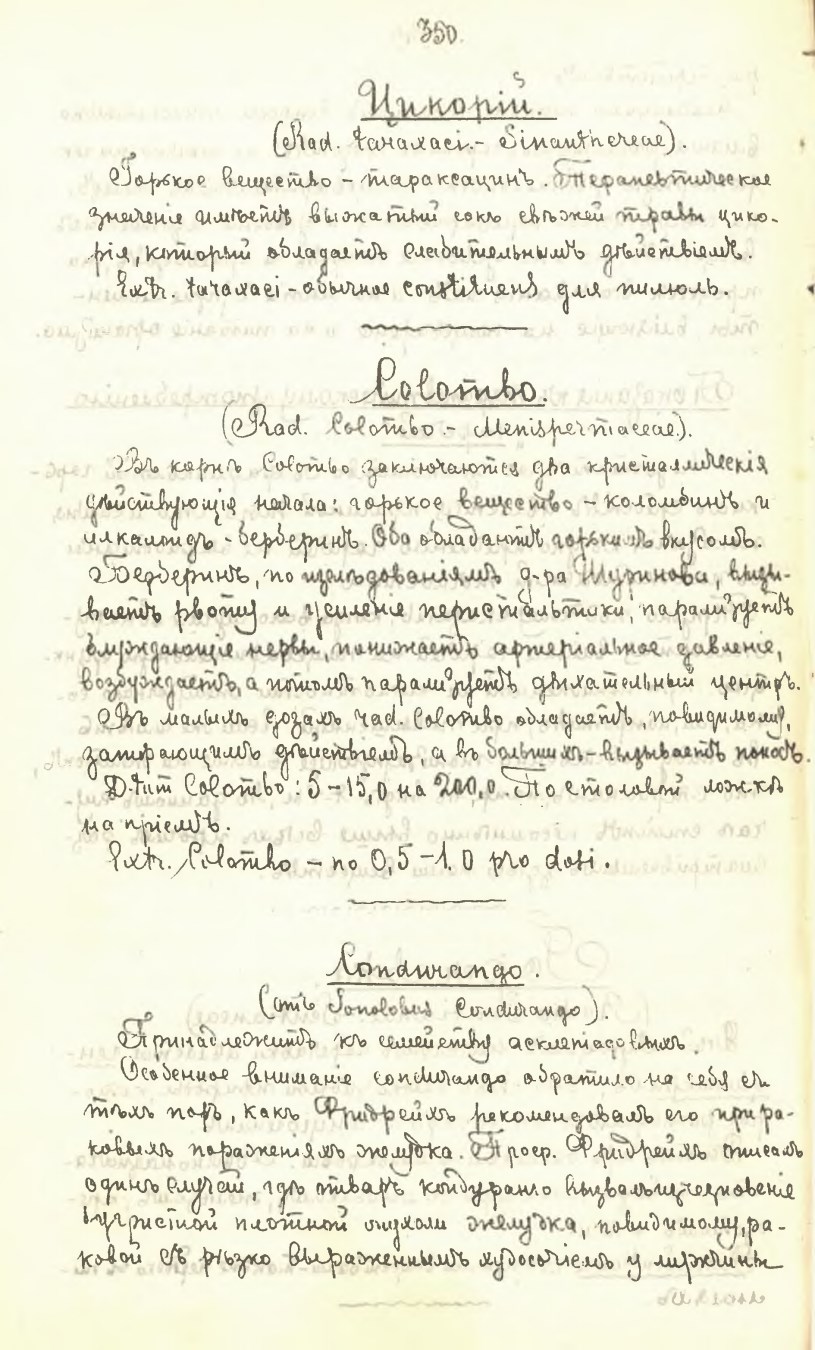 350
Цикорій.
(Rad. taraxaci. - Sinanthereae).
Горькое вещество - тараксацинъ. Терапевтическое
значеніе имѣетъ выжатый сокъ свѣжей травы цико-
рія, который обладаетъ слабительнымъ дѣйствіемъ.
Extr. taraxaci - обычное constituens для пилюль.
Colombo.
(Rad. Colombo. - Menispermaceae.).
Въ корнѣ Colombo заключаются два кристаллическія
дѣйствующія начала: горькое вещество - коломбинъ и
алкалоидъ - берберинъ. Оба обладаютъ горькимъ вкусомъ.
Берберинъ, по изслѣдованіямъ д-ра Шуринова, вызы-
ваетъ рвоту и усиленіе перистальтики, парализуетъ
блуждающіе нервы, понижаетъ артеріальное давленіе,
возбуждаетъ, а потомъ парализуетъ дыхательный центръ.
Въ малыхъ дозахъ rad. Colombo обладаетъ, повидимому,
запирающимъ дѣйствіемъ, а въ большихъ - вызываетъ поносъ.
D-tum Colombo: 5 - 15,0 на 200,0. По столовой ложкѣ
на пріемъ.
Extr. Colombo - по 0,5 - 1.0 pro dosi.
Condurango.
(отъ Gonolobus Condurango).
Принадлежитъ къ семейству асклепіадовыхъ.
Особенное вниманіе condurango обратило на себя съ
тѣхъ поръ, какъ Фридрейхъ рекомендовалъ его при ра-
ковыхъ пораженіяхъ желудка. Проф. Фридрейхъ описалъ
одинъ случай, гдѣ отваръ кондуранго вызвалъ исчезновеніе
бугристой плотной опухоли желудка, повидимому, ра-
ковой съ рѣзко выраженнымъ худосочіемъ у мужчины